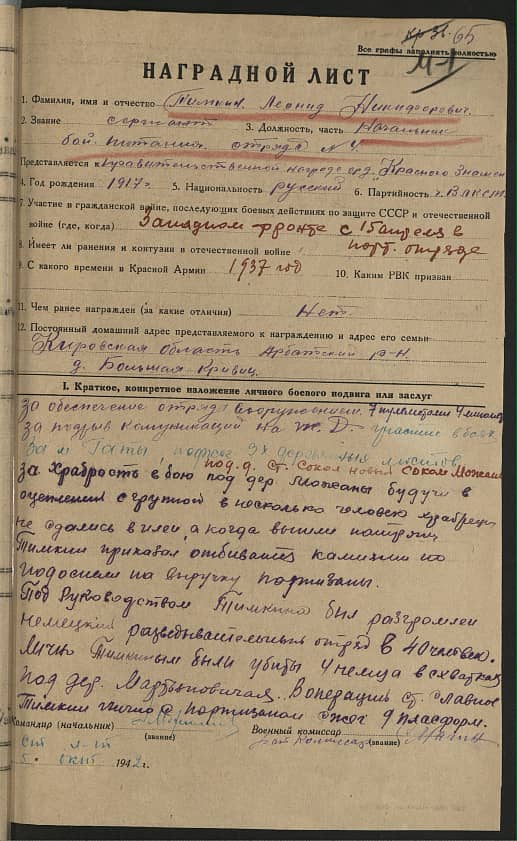 65
Все графы заполнять полностью
М-1
НАГРАДНОЙ ЛИСТ
1. Фамилия, имя и отчество Тимкин Леонид Никифорович.
2. Звание сержант 3. Должность, часть Начальник
бой. питания отряда №4.
Представляется к правительственной награде орд. "Красного Знамен
4. Год рождения 1917г. 5. Национальность русский 6. Партийность
7. Участие в гражданской войне, последующих боевых действиях по защите СССР и отечественной
войне (где, когда) Западном фронте с 15 апреля в
8. Имеет ли ранения и контузии в отечественной войне парт. отряде
9. С какого времени в Красной Армии 1937 год 10. Каким РВК призван
11. Чем ранее награжден (за какие отличия) Нет.
12. Постоянный домашний адрес представляемого к награждению и адрес его семьи
Кировская область Арбатский р-н
д. Больная
I. Краткое, конкретное изложение личного боевого подвига или заслуг
за обеспечение отряда вооружением 7 пулеметами
за подрыв комуникаций на Ж.Д. участие в боях
За м Гаты,
под. д. ст. Сокол новый Сокол Можаны
за храбрость в бою под дер. Можаны будучи в
оцеплении с группой в несколько человек храбрецы
не сдались в плен, а когда вышли патроны
Тимкин приказал отбиваться камнями но
подоспели на выручку партизаны.
Под руководством Тимкина был разгромлен
немецкий разведывательный отряд в 40 человек.
Лично Тимкиным были убиты 4 немца в схватках
под дер. Мартьяновичах. В операции ст. Славное
Тимкин лично с партизаном сжог 9 платформ.
Командир (начальник) Военный комиссар
(звание) (звание)
ст л-т
5. окт 1942г.